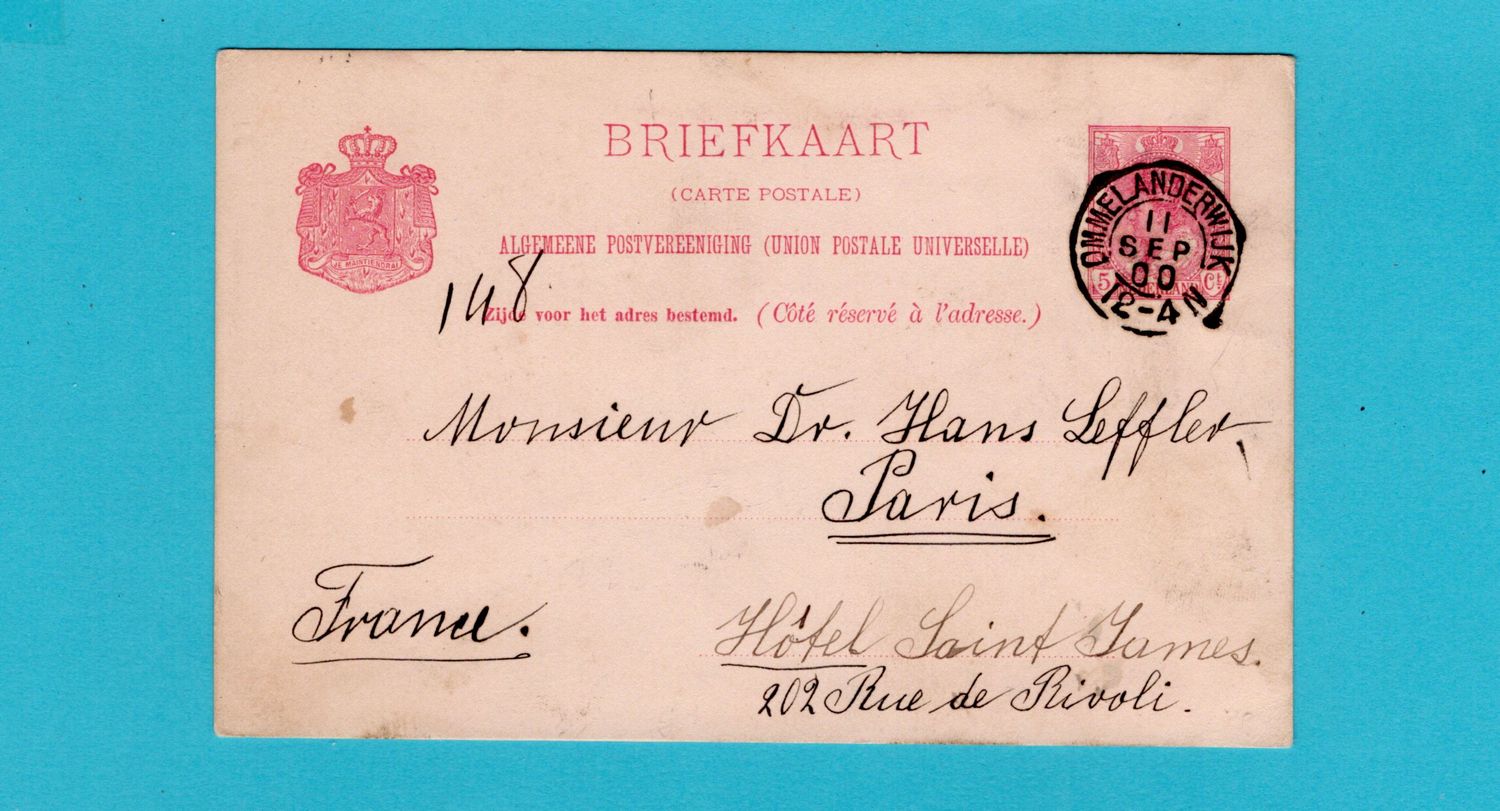 BRIEFKAART
(CARTE POSTALE)
ALGEMEENE POSTVEREENIGING (UNION POSTALE UNIVERSELLE)
148
Zijde voor het adres bestemd. (Côté réservé à l'adresse.)
JE MAINTIENDRAI
OMMELANDERWIJK
11
SEP
00
12-4N
5 NEDERLAND Ct
Monsieur Dr. Hans Leffler,
Paris.
France.
Hôtel Saint James.
202 Rue de Rivoli.